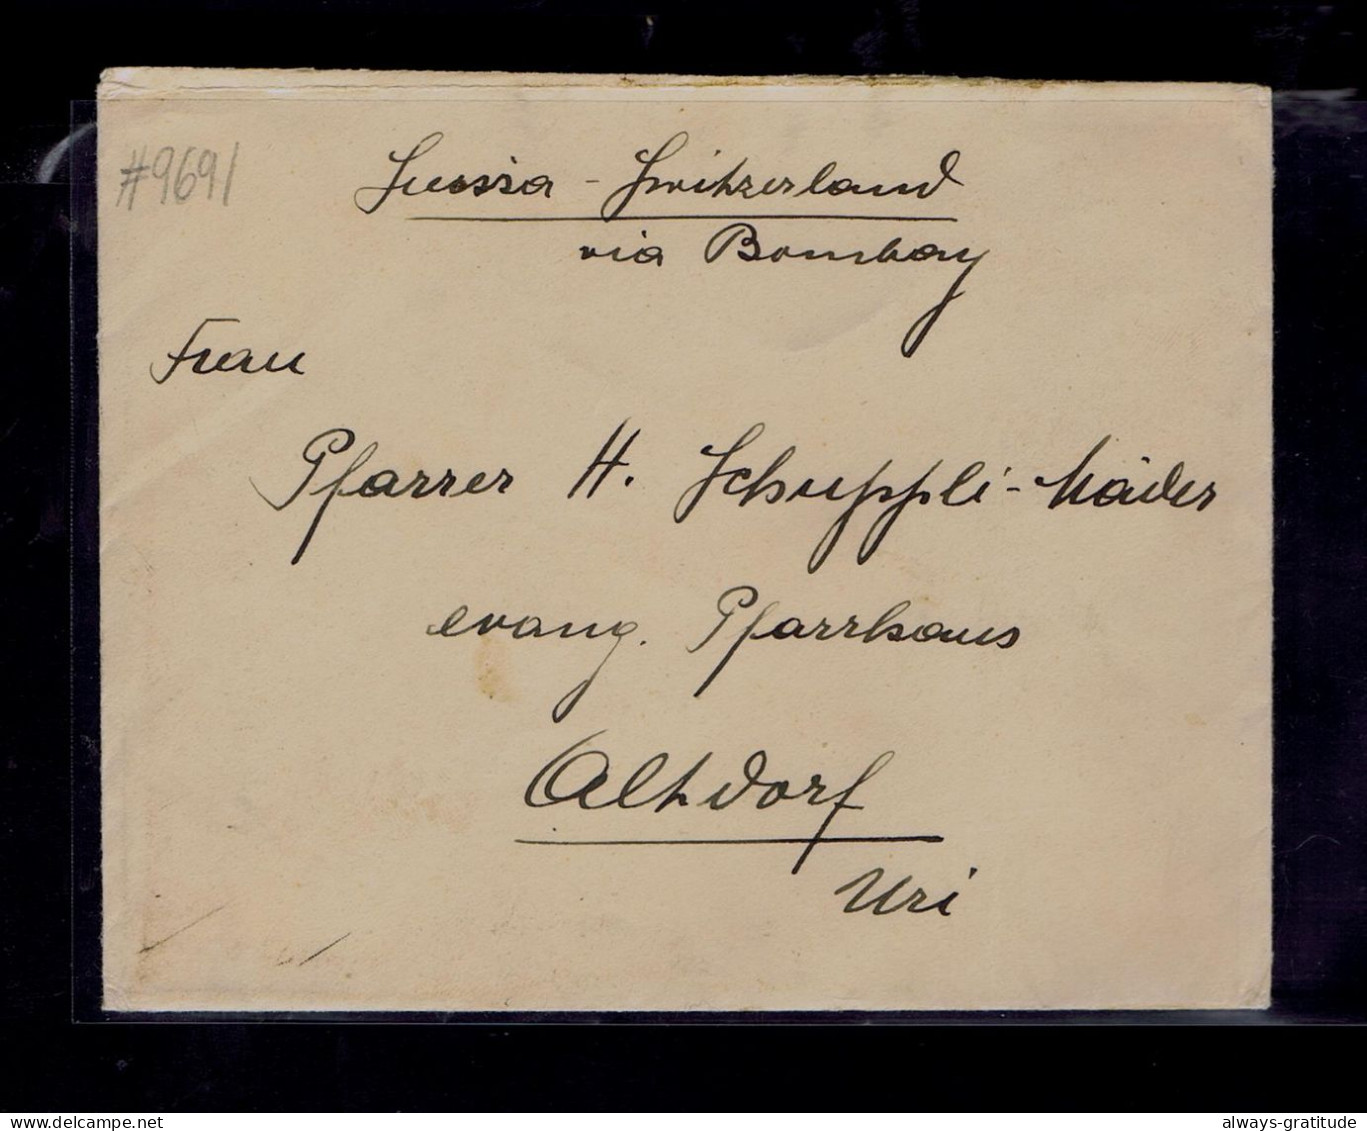 #9691
Suissa - Switzerland
via Bombay
Frau
Pfarrer H. Schuppli-Mäder
evang. Pfarrhaus
Altdorf
Uri
www.delcampe.net
always-gratitude